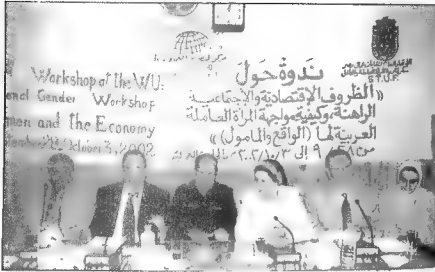 Workshop of the WU:
and Gender Workshop
men and the Economy
October 3, 2002
E.T.U.F.
ندوة حول
« الظروف الإقتصادية والإجتماعية
الراهنة، وكيفية مواجهة المرأة العاملة
العربية لها (الواقع والمأمول) »